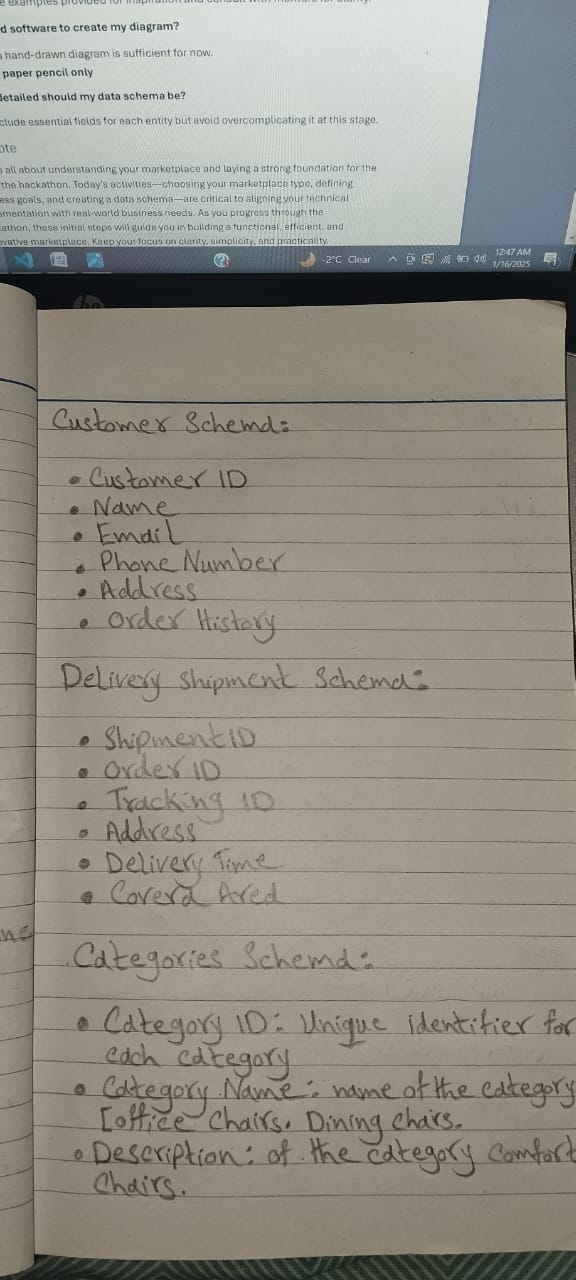 d software to create my diagram?
hand-drawn diagram is sufficient for now.
paper pencil only
detailed should my data schema be?
clude essential fields for each entity but avoid overcomplicating it at this stage.
ote
all about understanding your marketplace and laying a strong foundation for the
the hackathon. Today's activities—choosing your marketplace type, defining
ess goals, and creating a data schema—are critical to aligning your technical
ementation with real-world business needs. As you progress through the
athon, these initial steps will guide you in building a functional, efficient, and
ovative marketplace. Keep your focus on clarity, simplicity, and practicality
-2°C Clear
12:47 AM
1/16/2025
hp
Customer Schema:
• Customer ID
• Name
• Email
• Phone Number
• Address
• Order History
Delivery Shipment Schema:
• Shipment ID
• Order ID
• Tracking ID
• Address
• Delivery Time
• Covera Area
Categories Schema:
• Category ID: Unique identifier for
each category
• Category Name: name of the category
[office Chairs. Dining chairs.
• Description: of the category Comfort
Chairs.